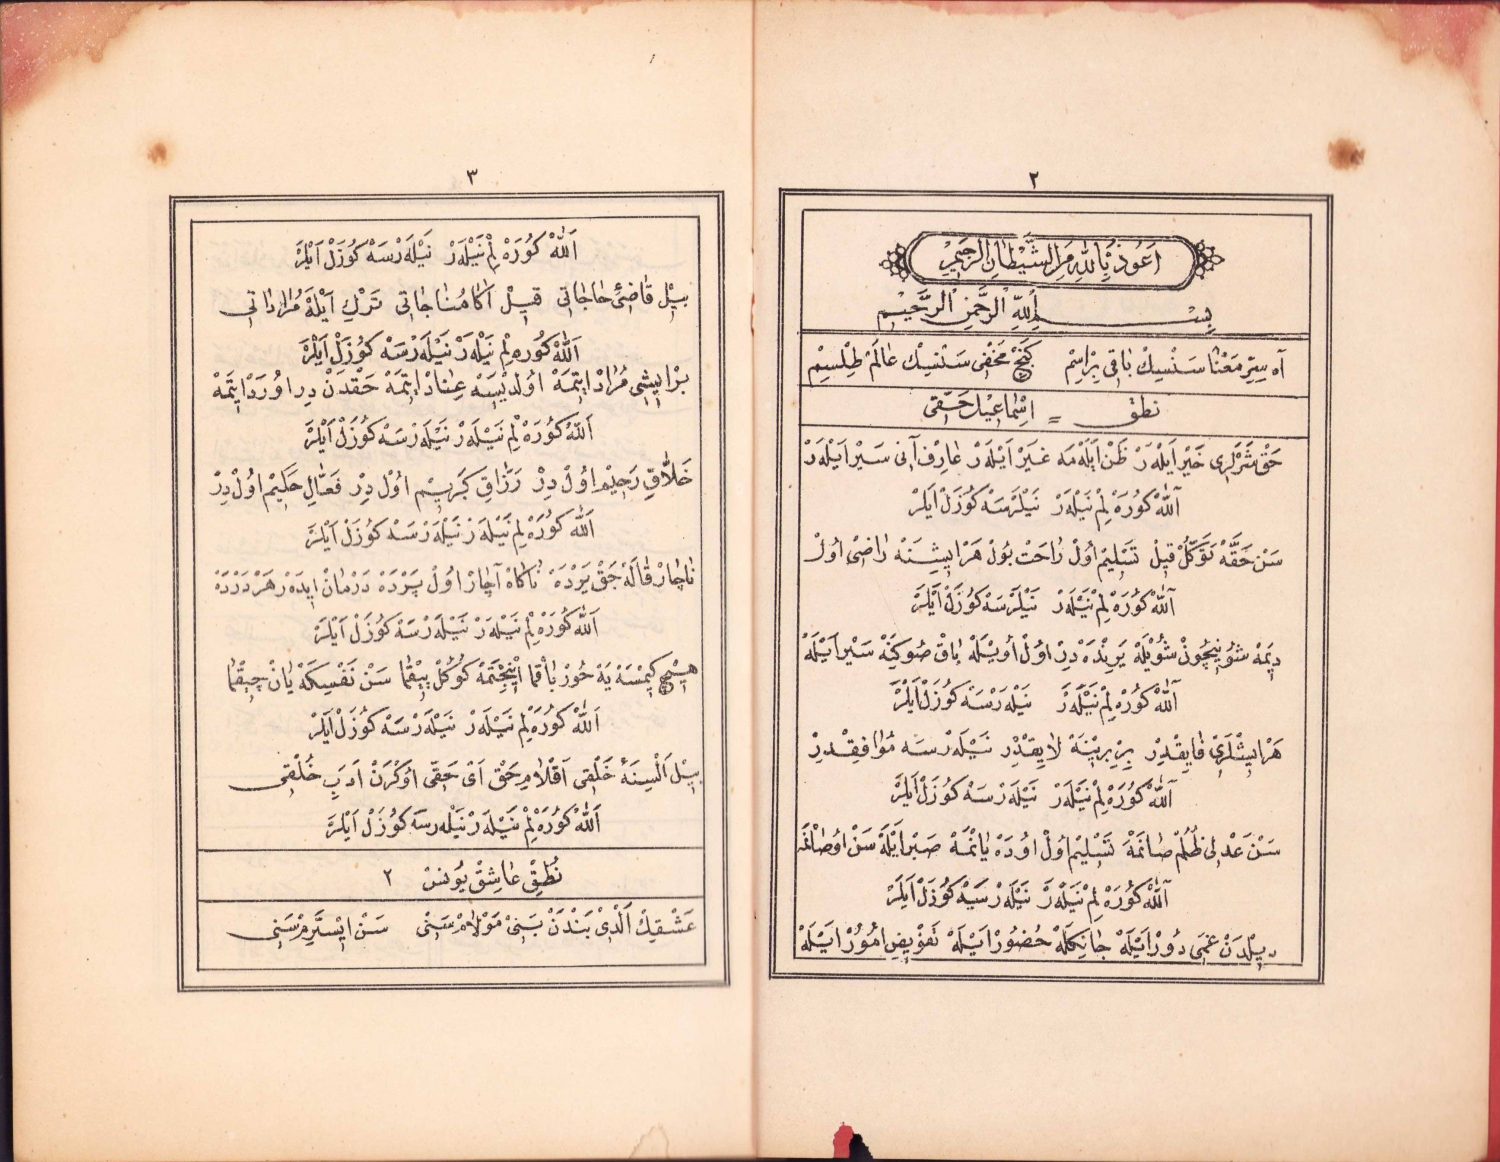 ٢
اَعُوذُ بِاللهِ مِنَ الشَّيْطَانِ الرَّجِيمِ
بِسْمِ اللهِ الرَّحْمٰنِ الرَّحِيمِ
آه سِرِّ مَعْنَا سَنْسِكْ بَاقِي بِرْاِسِمْ كَنْجِ مَخْفِي سَنْسِكْ عَالَمْ طِلْسِيمْ
نطق = اِسْمَاعِيلْ حَقِّى
حَقْ شَرْلَرِى خَيْرْ اَيْلَهْ رْ ظَنْ اَيْلَهْ مَه غَيْرْ اَيْلَهْ رْ عَارِفْ آنِى سَيْرْ اَيْلَهْ رْ
اَللّٰهْ كُورَهْ لِمْ نَيْلَهْ رْ نَيْلَرْسَهْ كُوزَلْ اَيْلَرْ
سَنْ حَقَّهْ تَوَكُّلْ قِيلْ تَسْلِيمْ اُولْ رَاحَتْ بُولْ هَرْ اِيشِنَهْ رَاضِى اُولْ
اَللّٰهْ كُورَهْ لِمْ نَيْلَهْ رْ نَيْلَرْسَهْ كُوزَلْ اَيْلَرْ
دِيمَهْ شُو نِيچُونْ شُوْيْلَهْ يَرِنْدَهْ دِرْ اُولْ اُويْلَهْ بَاقْ صُوكِنَهْ سَيْرْ اَيْلَهْ
اَللّٰهْ كُورَهْ لِمْ نَيْلَهْ رْ نَيْلَهْ رْسَهْ كُوزَلْ اَيْلَرْ
هَرْ اِيشْلَرِى فَايِقْدِرْ بِرْ بِرِينَهْ لَايِقْدِرْ نَيْلَهْ رْسَهْ مُوَافِقْدِرْ
اَللّٰهْ كُورَهْ لِمْ نَيْلَهْ رْ نَيْلَهْ رْسَهْ كُوزَلْ اَيْلَرْ
سَنْ عَدْلِى ظُلُمْ صَانْمَهْ تَسْلِيمْ اُولْ اُودَهْ يَانْمَهْ صَبْرْ اَيْلَهْ سَنْ اُوصَانْمَهْ
اَللّٰهْ كُورَهْ لِمْ نَيْلَهْ رْ نَيْلَهْ رْسَهْ كُوزَلْ اَيْلَرْ
دِيلْدَنْ غَمِى دُورْ اَيْلَهْ جَانِكْلَهْ حُضُورْ اَيْلَهْ تَفْوِيضِ اُمُورْ اَيْلَهْ
٣
اَللّٰهْ كُورَهْ لِمْ نَيْلَهْ رْ نَيْلَهْ رْسَهْ كُوزَلْ اَيْلَرْ
بِيلْ قَاضِئِ حَاجَاتِى قِيلْ اَكَا مُنَاجَاتِى تَرْكِ اَيْلَهْ مُرَادَاتِى
اَللّٰهْ كُورَهْ لِمْ نَيْلَهْ رْ نَيْلَهْ رْسَهْ كُوزَلْ اَيْلَرْ
بِرْ اِيشِى مُرَادْ اِيتْمَهْ اُولْدِيسَهْ عِنَادْ اِيتْمَهْ حَقْدَنْ دِر اُو رَدْ اِيتْمَهْ
اَللّٰهْ كُورَهْ لِمْ نَيْلَهْ رْ نَيْلَهْ رْسَهْ كُوزَلْ اَيْلَرْ
خَلَّاقِ رَحِيمْ اُولْ دِرْ رَزَّاقِ كَرِيمْ اُولْ دِرْ فَعَّالِ حَكِيمْ اُولْ دِرْ
اَللّٰهْ كُورَهْ لِمْ نَيْلَهْ رْ نَيْلَهْ رْسَهْ كُوزَلْ اَيْلَرْ
نَاچَارْ قَالَهْ جَقْ يَرْدَهْ نَاكَاهْ آچَارْ اُولْ پَرْدَهْ دَرْمَانْ اِيدَهْ رْ هَرْ دَرْدَهْ
اَللّٰهْ كُورَهْ لِمْ نَيْلَهْ رْ نَيْلَهْ رْسَهْ كُوزَلْ اَيْلَرْ
هِيچْ كِيمْسَهْ يَهْ خُورْ بَاقْمَا اِينْجِتْمَهْ كُوكُلْ يِيقْمَا سَنْ نَفْسِكَهْ يَانْ چِيقْمَا
اَللّٰهْ كُورَهْ لِمْ نَيْلَهْ رْ نَيْلَهْ رْسَهْ كُوزَلْ اَيْلَرْ
بِيلْ اَلْسِنَهُٔ خَلْقِى آقْلَامِ حَقْ اَىْ حَقِّى اُوكْرَنْ اَدَبِ خُلْقِى
اَللّٰهْ كُورَهْ لِمْ نَيْلَهْ رْ نَيْلَهْ رسَهْ كُوزَلْ اَيْلَرْ
نُطْقِ عَاشِقْ يُونُسْ ٢
عَشْقِكْ اَلْدِى بَنْدَنْ بَنِى مَوْلَامْ سَنِى سَنْ اِيسْتَرِمْ سَنِى